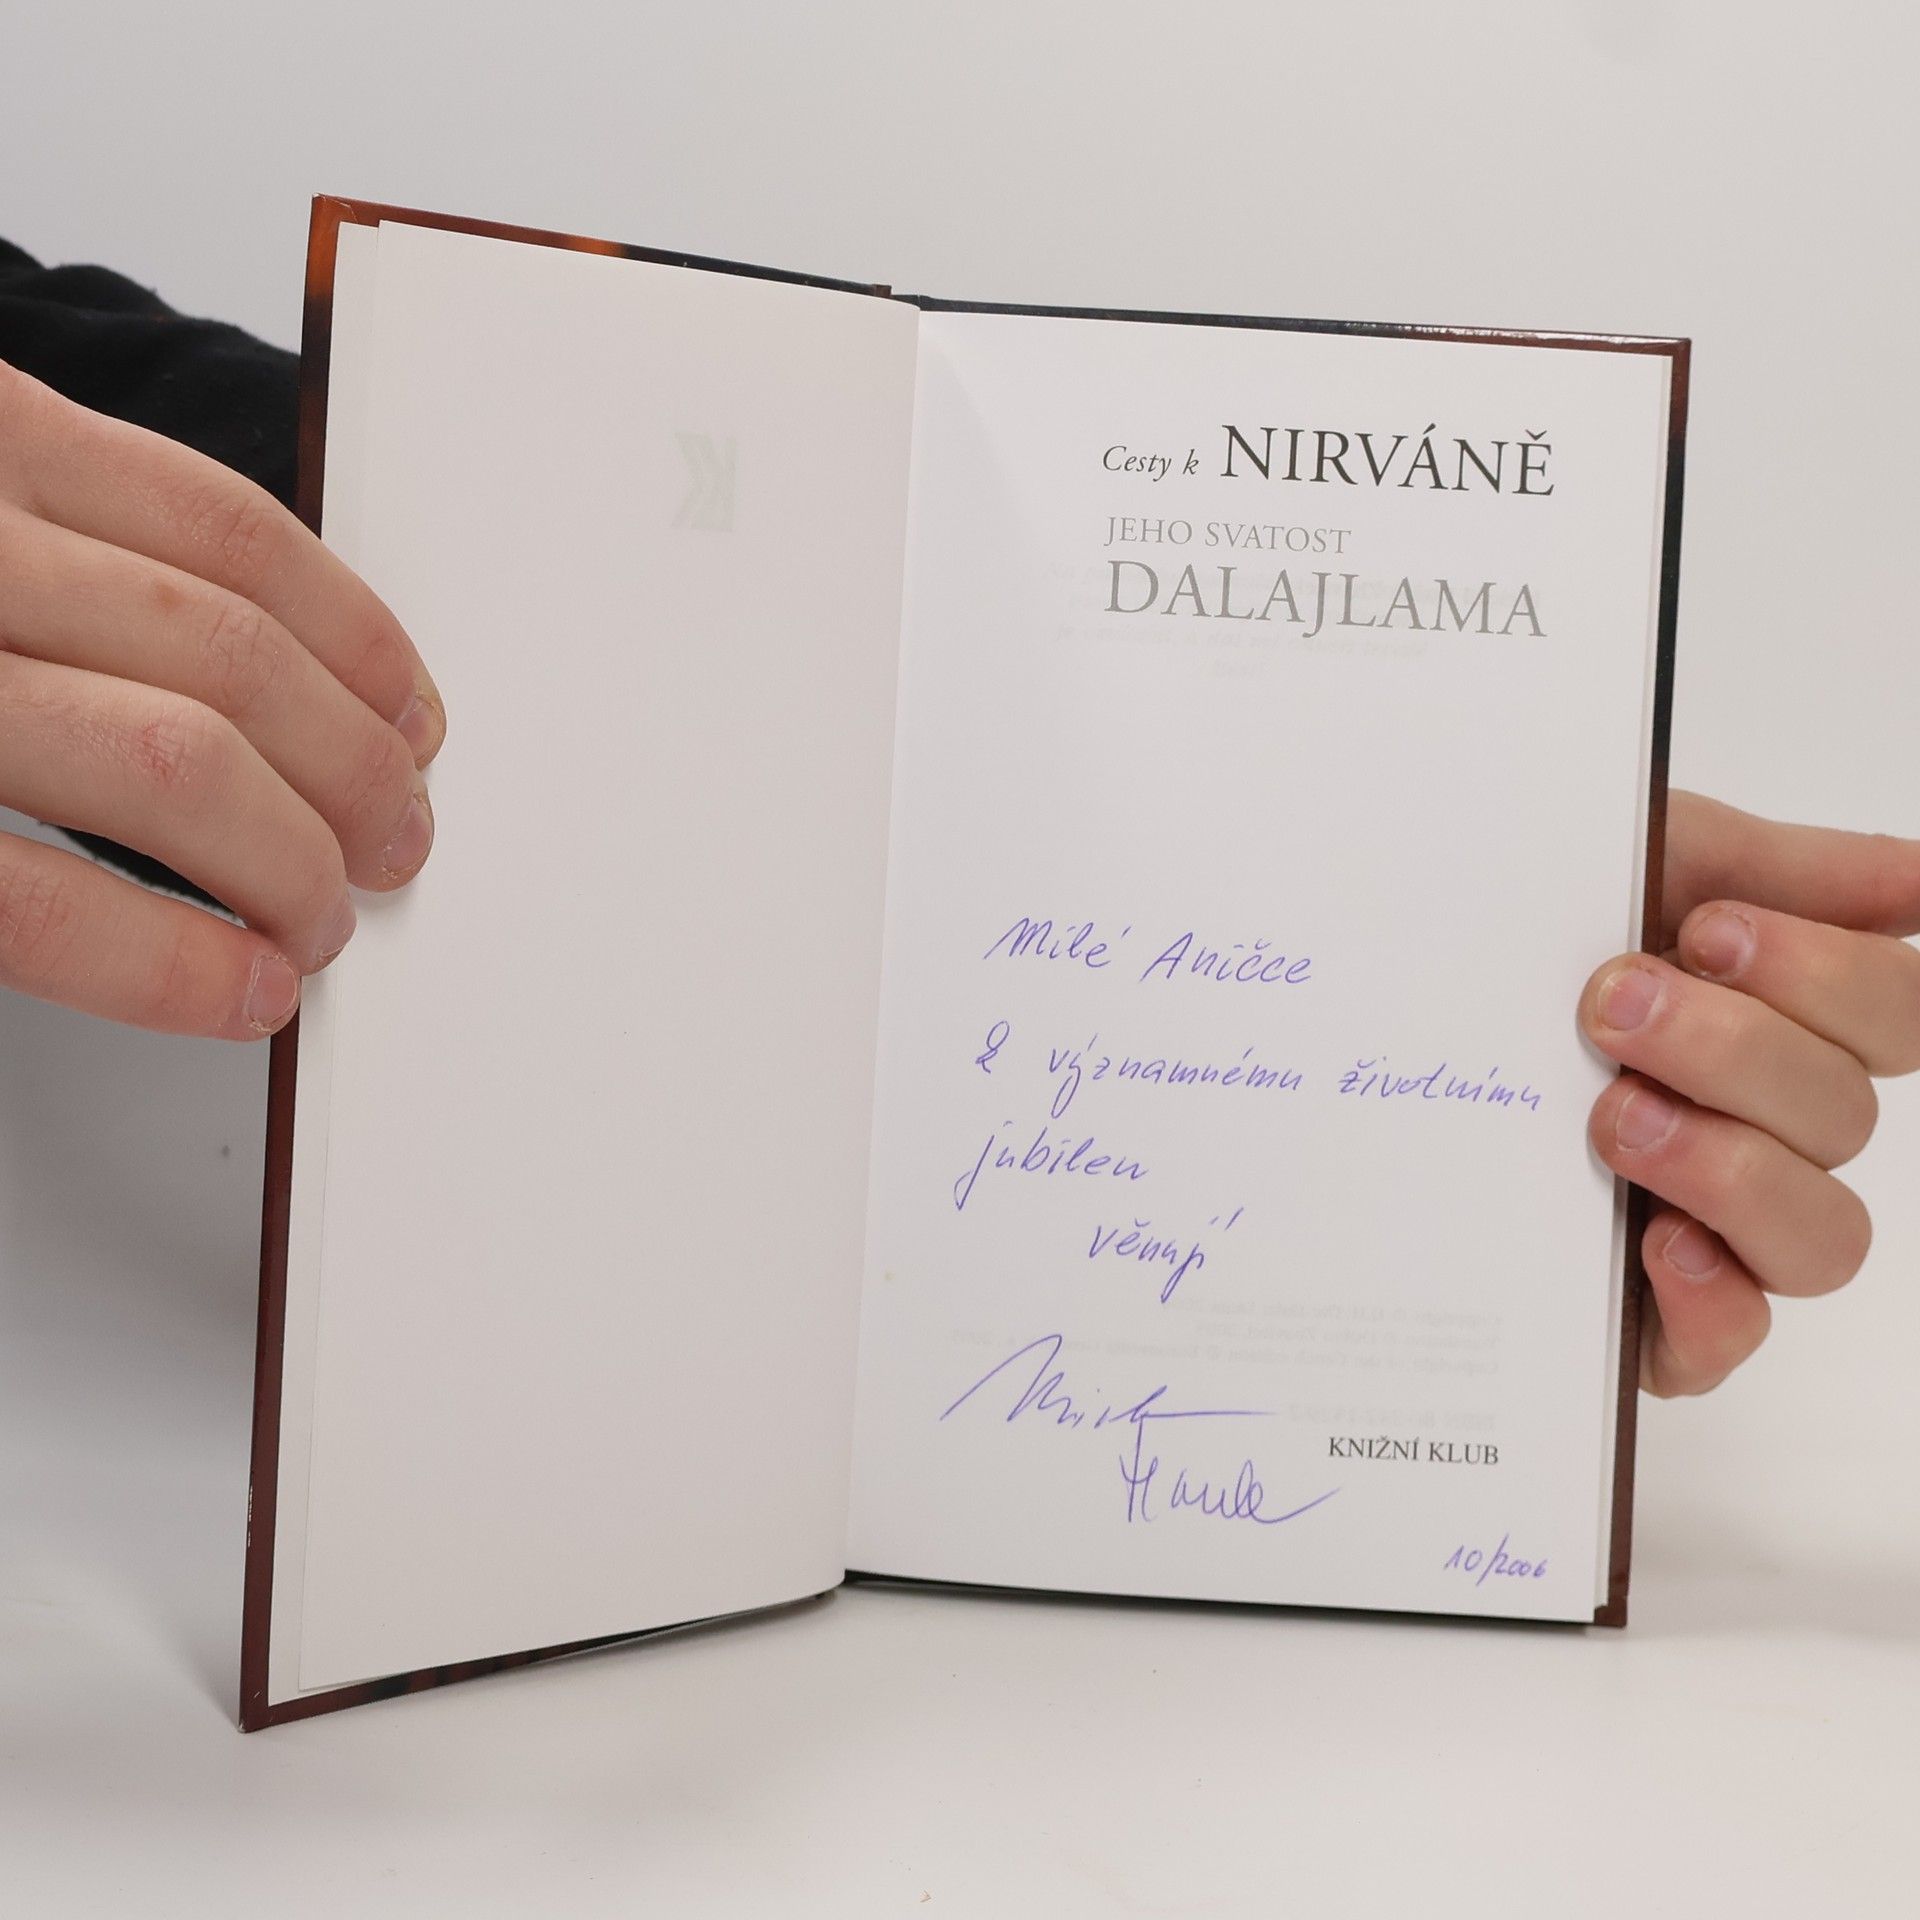 Cesty k NIRVÁNĚ
JEHO SVATOST
DALAJLAMA
Milé Aničce
k významnému životnímu
jubileu
věnují
KNIŽNÍ KLUB
10/2006